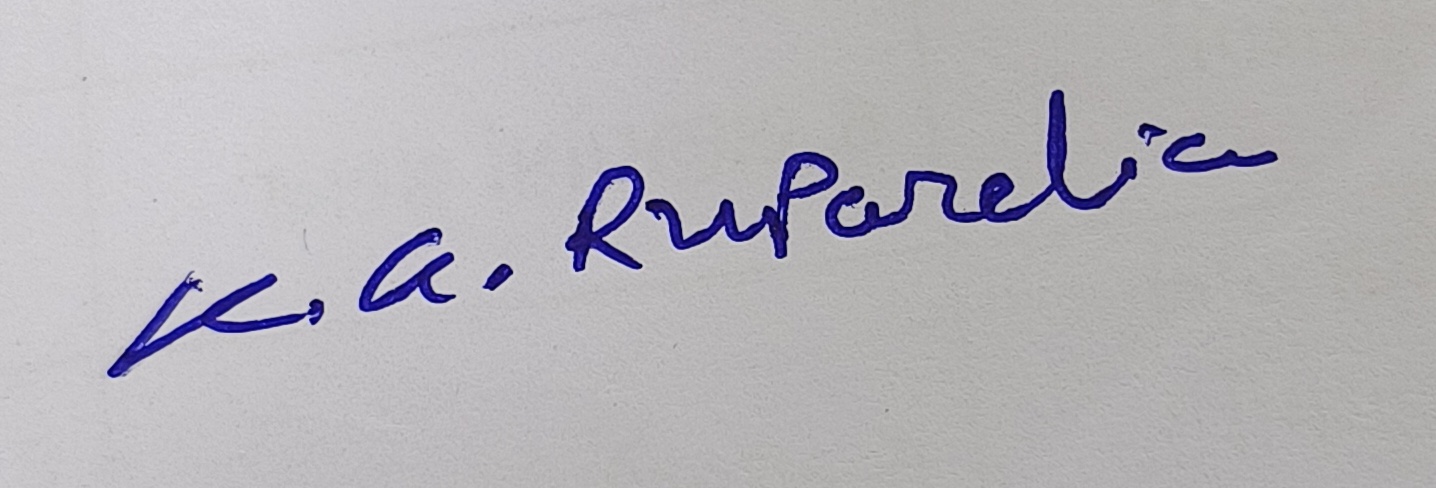 K. A. Ruparelia